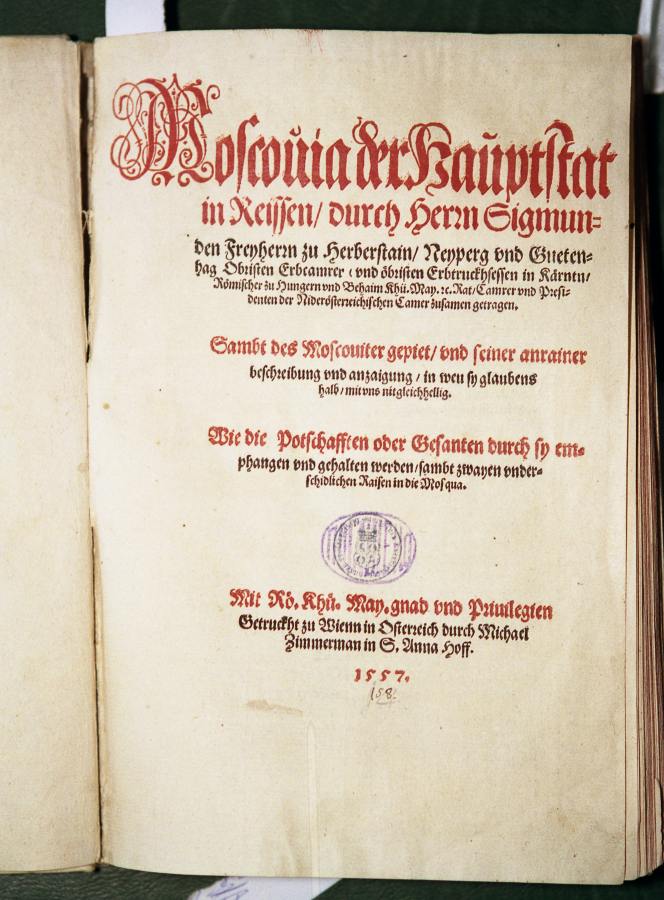 Moscouia der Hauptstat
in Reissen/ durch Herrn Sigmun=
den Freyherrn zu Herberstain/ Neyperg vnd Gueten=
hag Obristen Erbcamrer/ vnd öbristen Erbtruckhsessen in Kärntn/
Römischer zu Hungern vnd Behaim Khü. May. ꝛc. Rat/ Camrer vnd Presi=
denten der Niderösterreichischen Camer zusamen getragen.
Sambt des Moscouiter gepiet/ vnd seiner anrainer
beschreibung vnd anzaigung/ in weu sy glaubens
halb/ mit vns nit gleichhellig.
Wie die Potschafften oder Gesanten durch sy em=
phangen vnd gehalten werden/ sambt zwayen vnder=
schidlichen Raisen in die Mosqua.
Mit Rö. Khü. May. gnad vnd Priuilegien
Getruckht zu Wienn in Osterreich durch Michael
Zimmerman in S. Anna Hoff.
1557.
158.